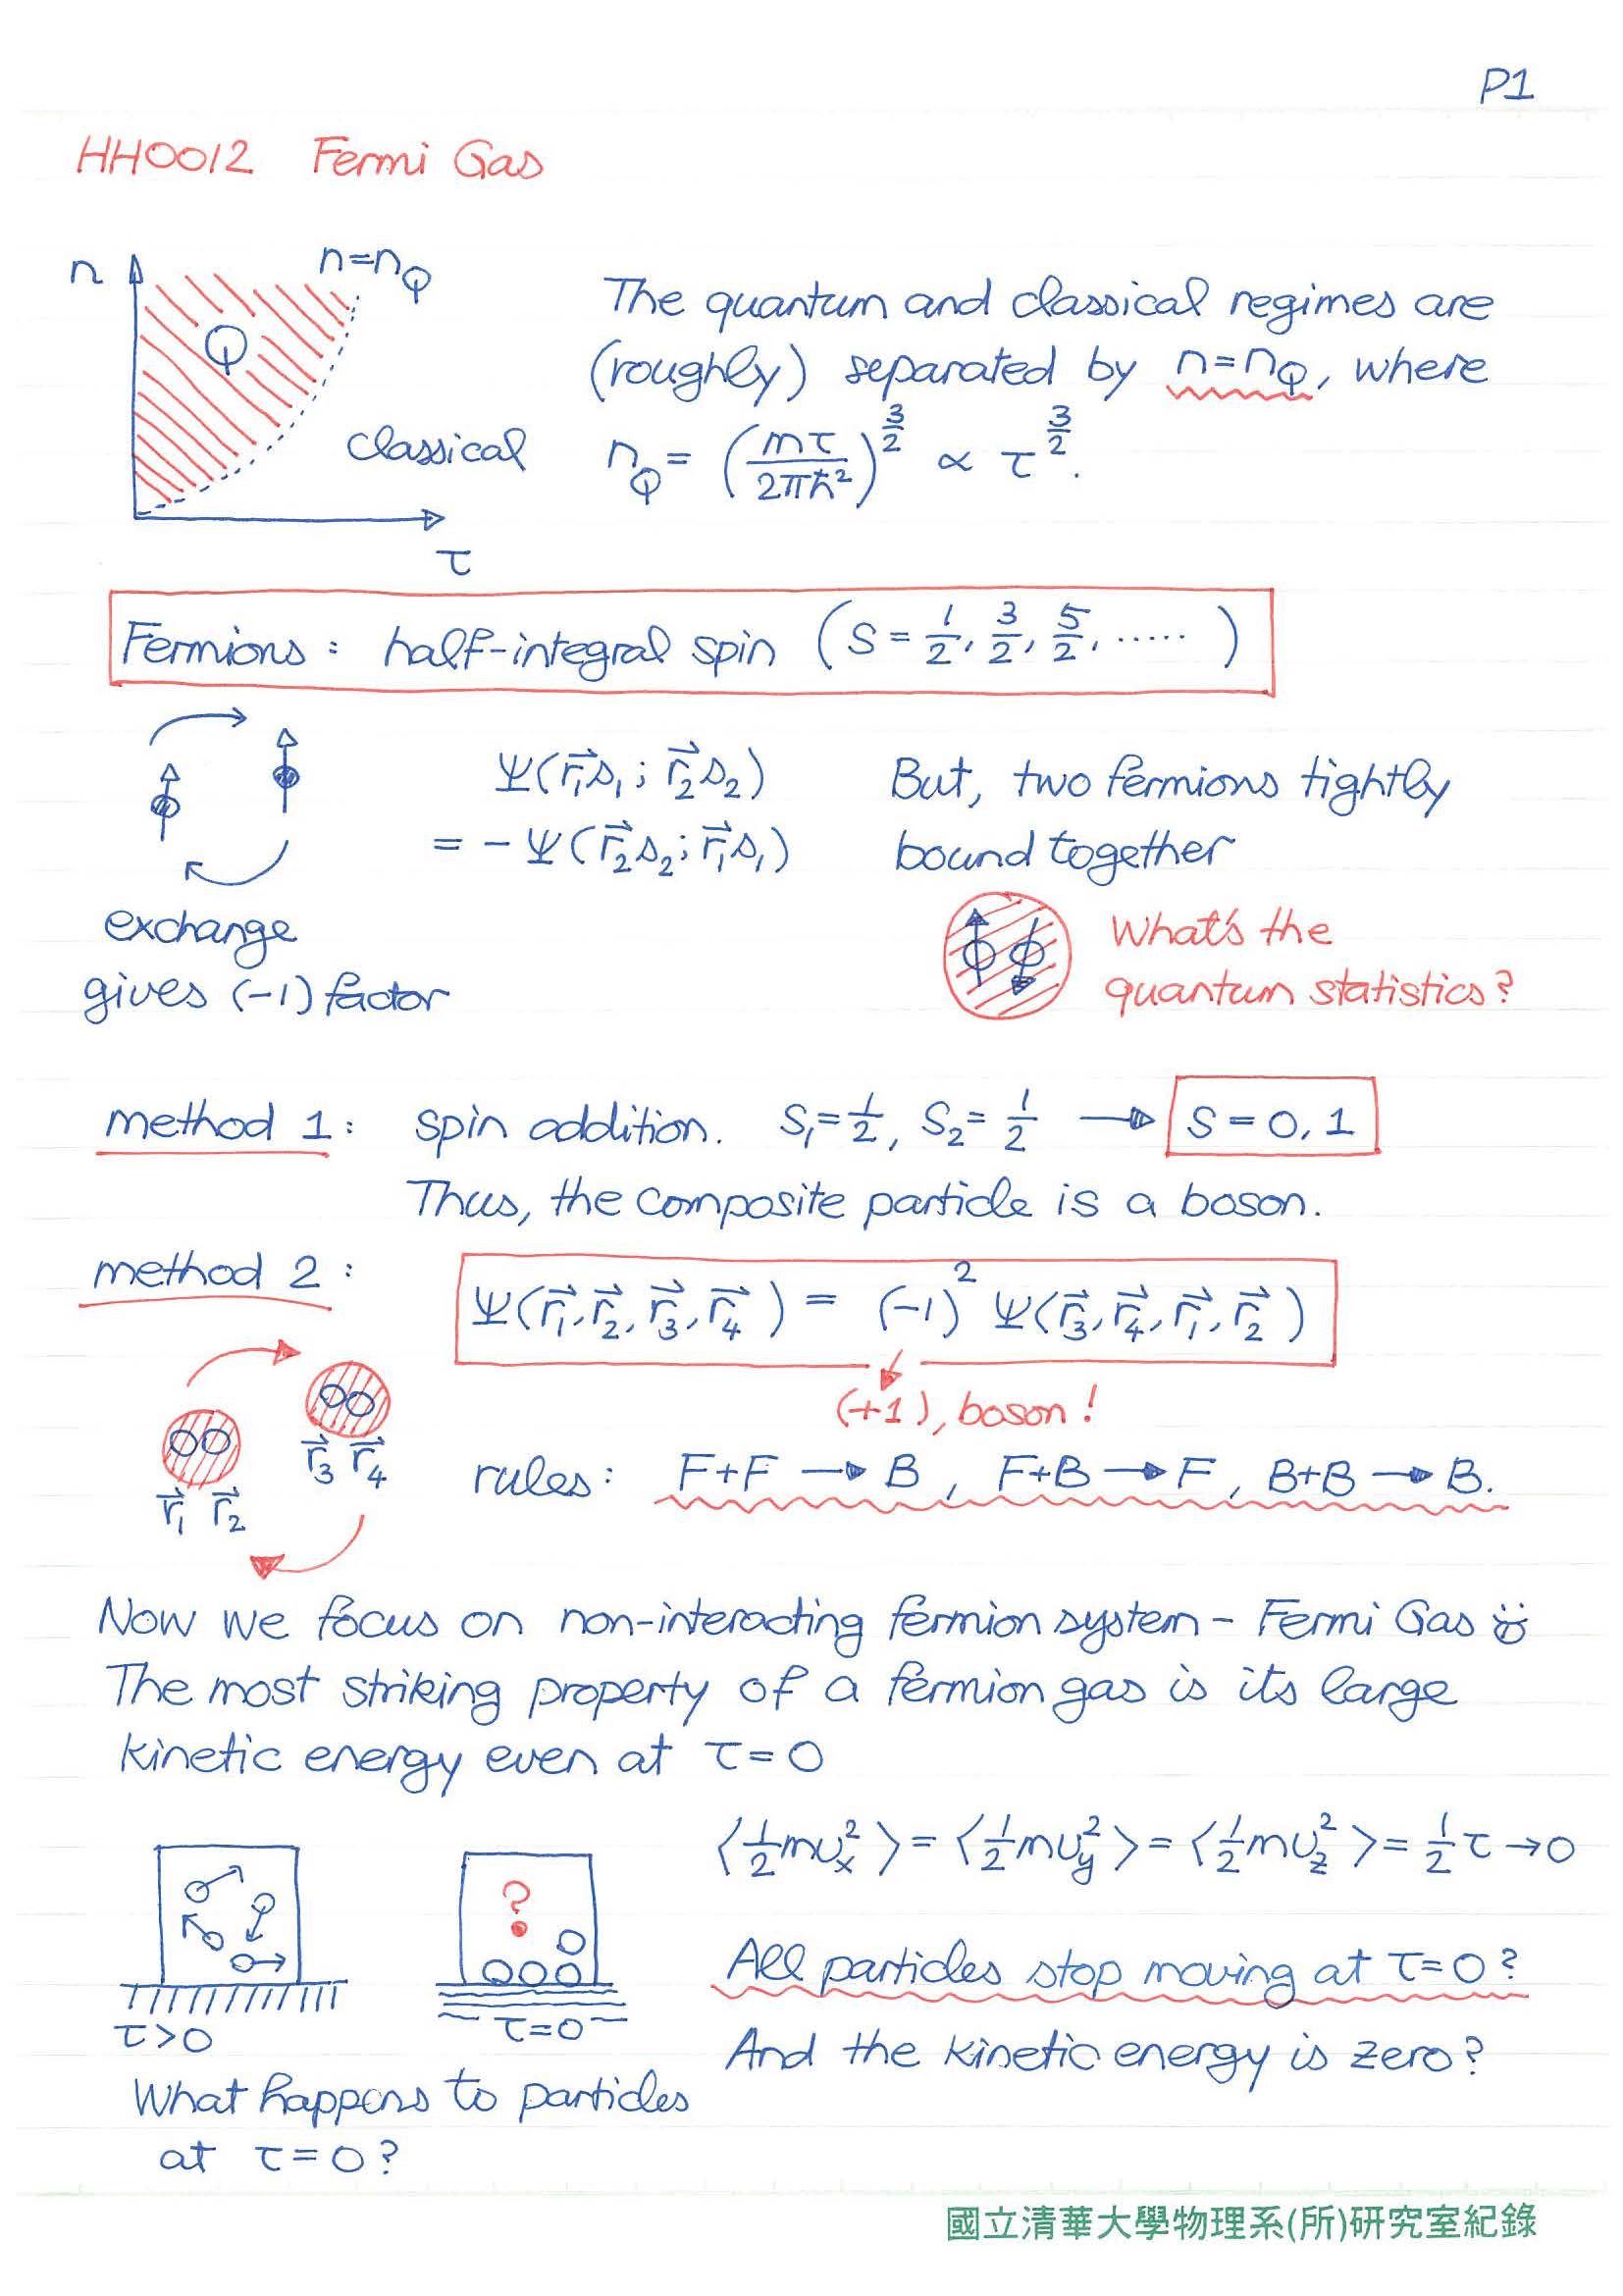 P1
HH0012 Fermi Gas
n
n=n_Q
Q
classical
τ
The quantum and classical regimes are
(roughly) separated by n=n_Q, where
n_Q = (mτ/2πħ²)^(3/2) ∝ τ^(3/2).
Fermions : half-integral spin (S = 1/2, 3/2, 5/2, ..... )
Ψ(r⃗₁s₁; r⃗₂s₂)
= - Ψ(r⃗₂s₂; r⃗₁s₁)
exchange
gives (-1) factor
But, two fermions tightly
bound together
What's the
quantum statistics?
method 1: spin addition. S₁=1/2, S₂=1/2 → S = 0, 1
Thus, the composite particle is a boson.
method 2 : Ψ(r⃗₁, r⃗₂, r⃗₃, r⃗₄) = (-1)² Ψ(r⃗₃, r⃗₄, r⃗₁, r⃗₂)
(+1), boson!
r⃗₃ r⃗₄
r⃗₁ r⃗₂
rules: F+F → B, F+B → F, B+B → B.
Now we focus on non-interacting fermion system - Fermi Gas
The most striking property of a fermion gas is its large
kinetic energy even at τ=0
⟨1/2 mv_x²⟩ = ⟨1/2 mv_y²⟩ = ⟨1/2 mv_z²⟩ = 1/2 τ → 0
?
τ>0
τ=0
All particles stop moving at τ=0?
And the kinetic energy is zero?
What happens to particles
at τ=0?
國立清華大學物理系(所)研究室紀錄